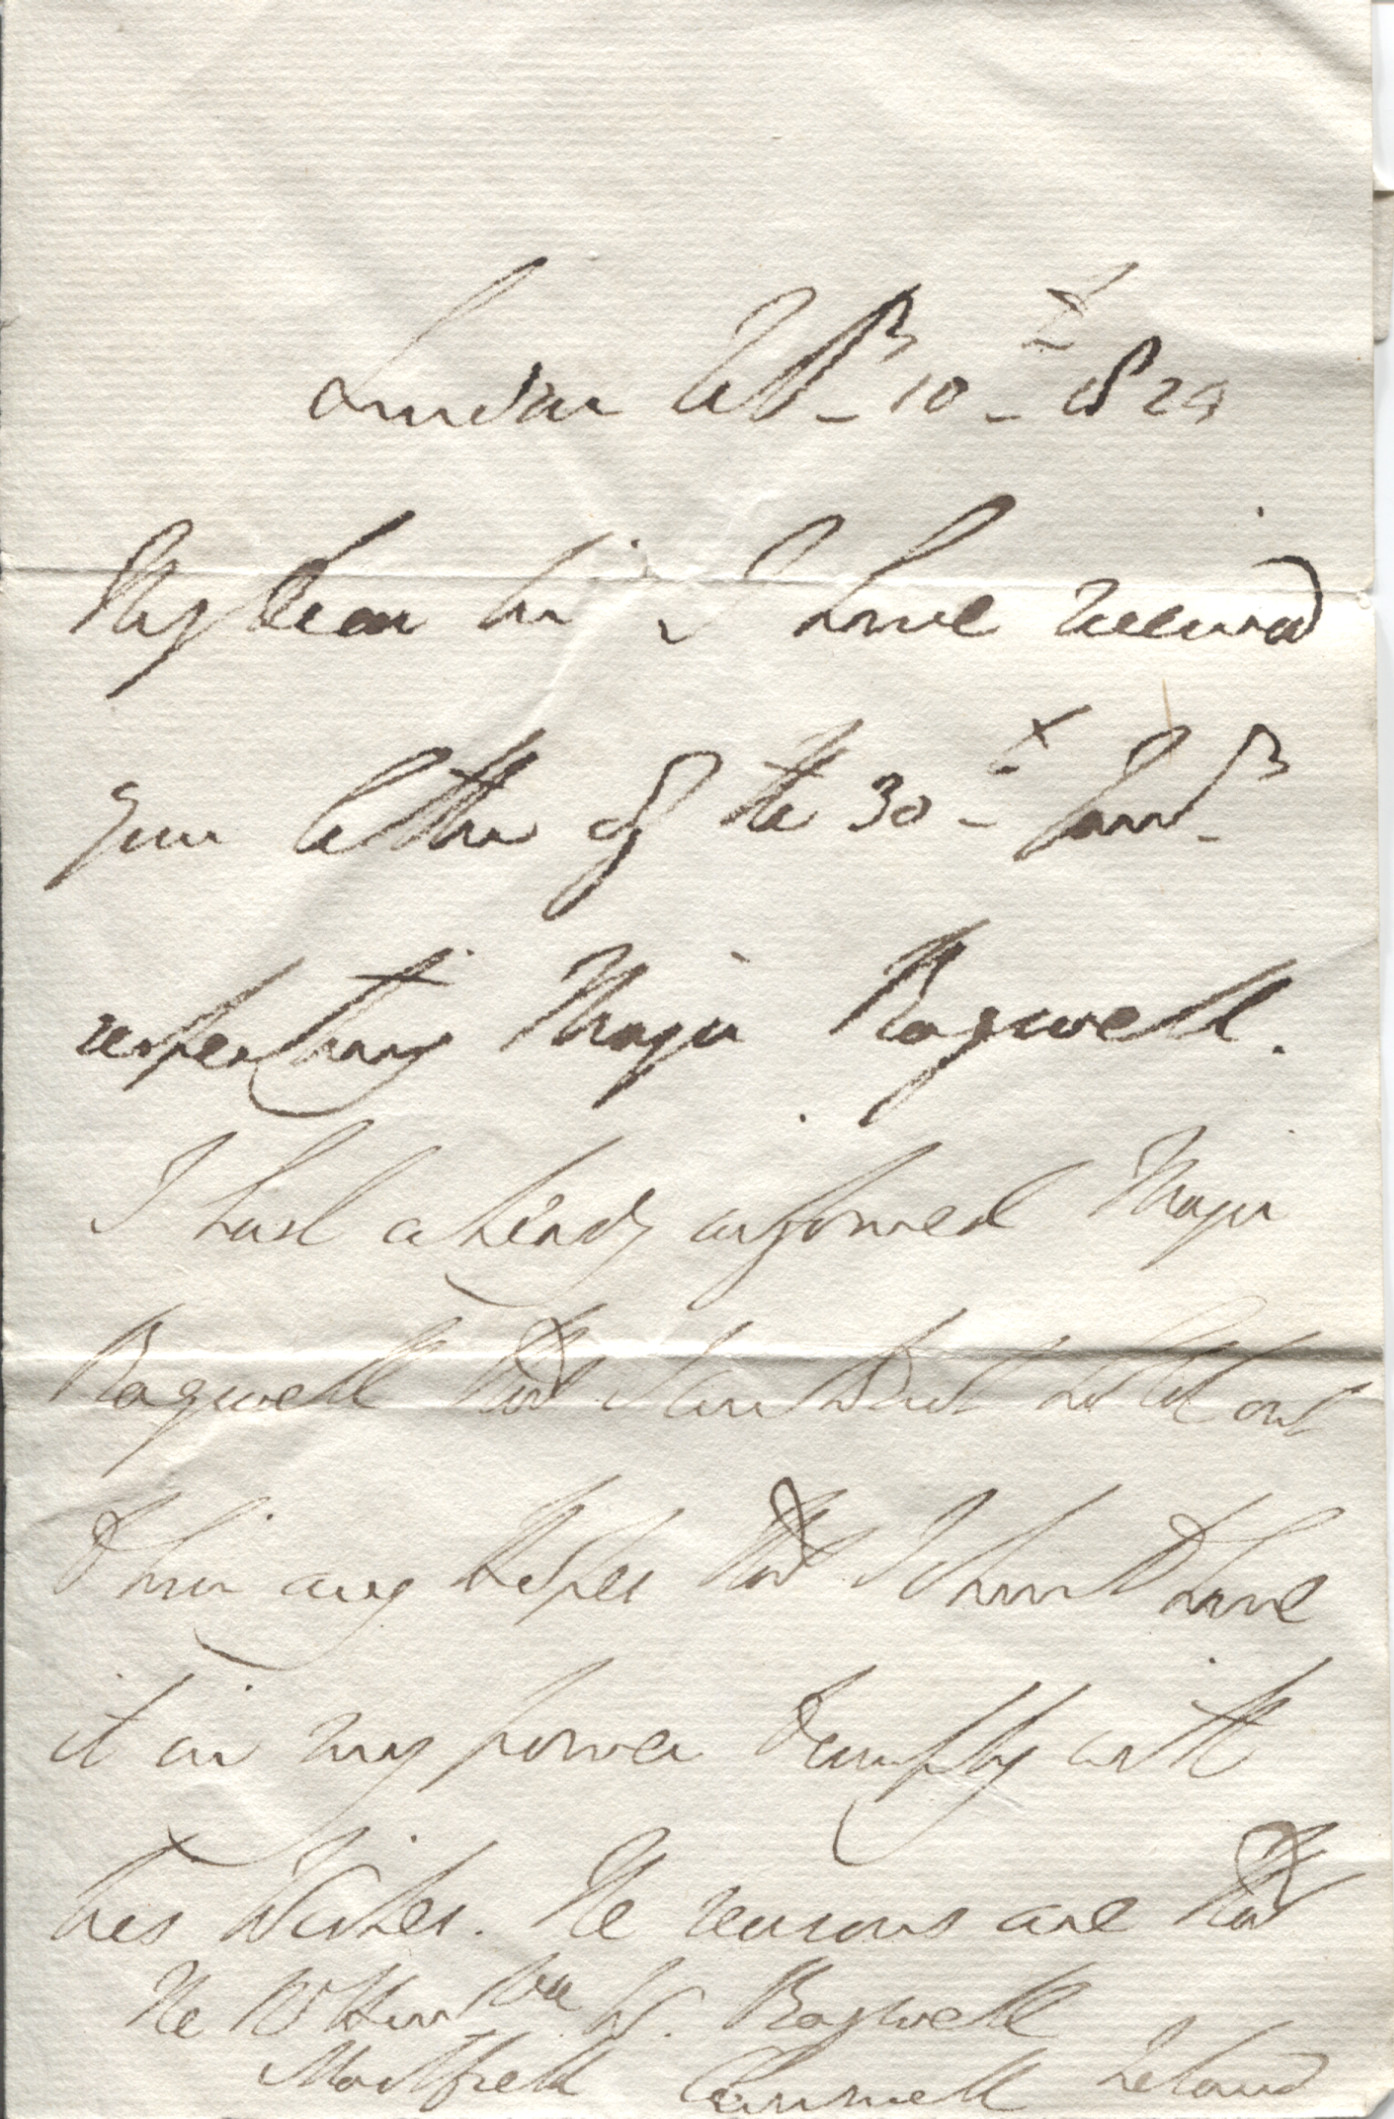 London Feby. 10th 1824
My dear Sir I have received
your letter of the 30th Jany.
respecting Major Bagwell.
I had already informed Major
Bagwell that I could not hold out
to him any Hopes that I should have
it in my power to comply with
his Wishes. The reasons are that
The Rt Honble W. Bagwell
Marlfield Clonmell Ireland